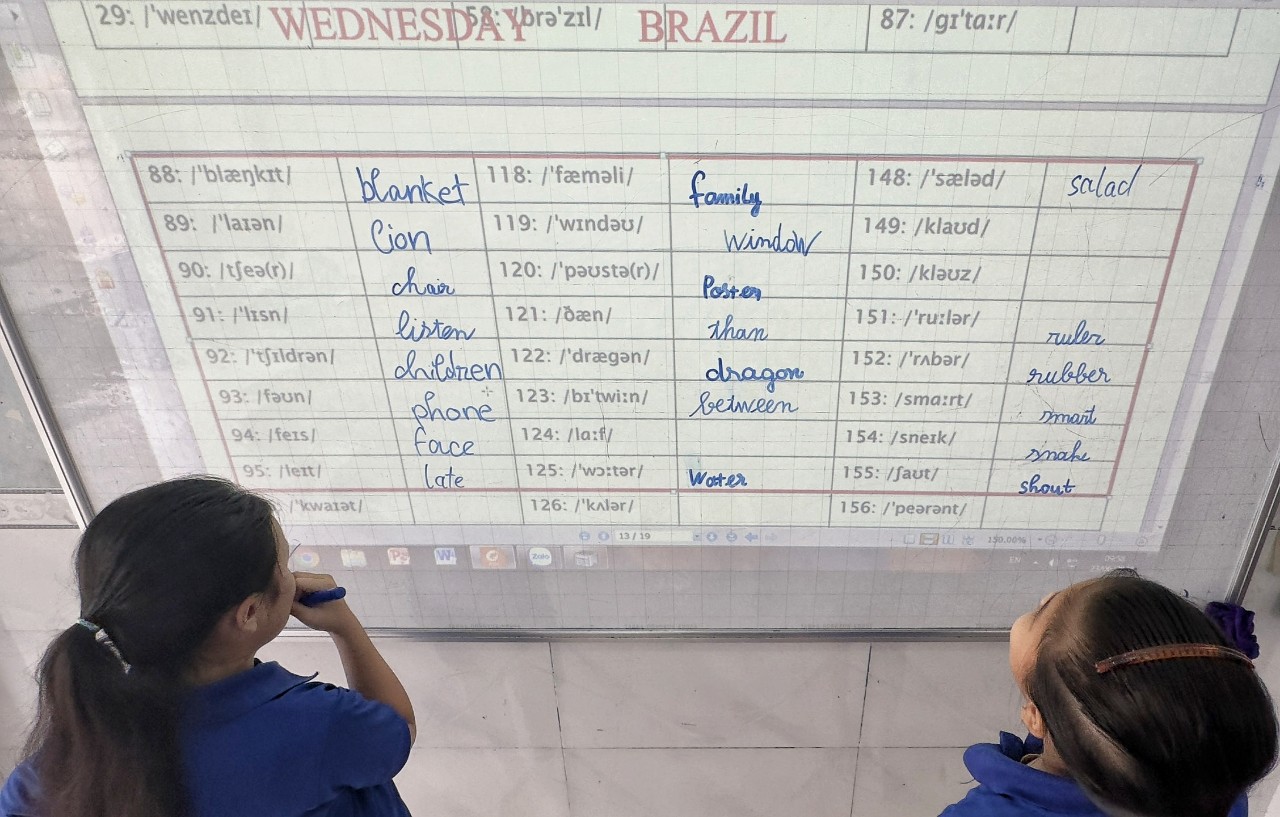 29: /'wenzdeɪ/ WEDNESDAY 58: /brə'zɪl/ BRAZIL 87: /gɪ'tɑːr/
88: /'blæŋkɪt/ blanket 118: /'fæməli/ family 148: /'sæləd/ salad
89: /'laɪən/ lion 119: /'wɪndəʊ/ window 149: /klaʊd/
90: /tʃeə(r)/ chair 120: /'pəʊstə(r)/ Poster 150: /kləʊz/
91: /'lɪsn/ listen 121: /ðæn/ than 151: /'ruːlər/ ruler
92: /'tʃɪldrən/ children 122: /'drægən/ dragon 152: /'rʌbər/ rubber
93: /fəʊn/ phone 123: /bɪ'twiːn/ between 153: /smɑːrt/ smart
94: /feɪs/ face 124: /lɑːf/ 154: /sneɪk/ snake
95: /leɪt/ late 125: /'wɔːtər/ Water 155: /ʃaʊt/ shout
/'kwaɪət/ 126: /'kʌlər/ 156: /'peərənt/
13 / 19 150.00%
Zalo EN